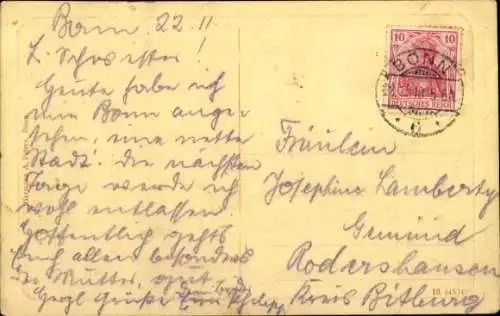 Bonn 22 11
L. Schwester!
Heute habe ich
mir Bonn ange-
sehen, eine nette
Stadt. Die nächsten
Tage werde ich
wohl entlassen
Hoffentlich gehts
Euch allen besonders
der Mutter, gut
Herzl Grüße Euer Bruder Philipp
10 10
BONN
DEUTSCHES REICH
Fräulein
Josephine Lamberty
Gemünd
Rodershausen
Kreis Bitburg